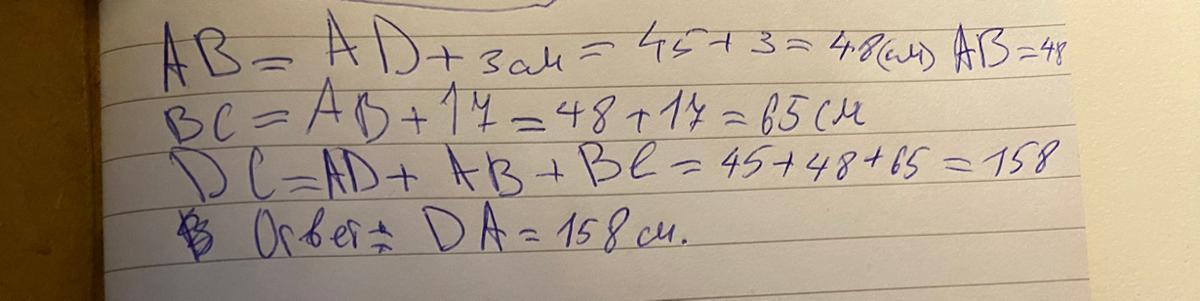 AB = AD + 3см = 45 + 3 = 48(см) AB = 48
BC = AB + 17 = 48 + 17 = 65 см
DC = AD + AB + BC = 45 + 48 + 65 = 158
Ответ: DA = 158 см.